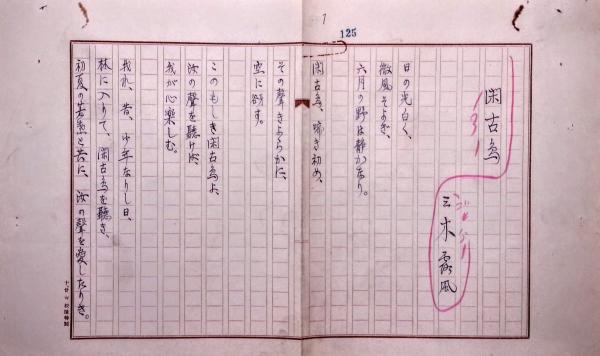 125
閑古鳥
三木露風
日の光白く、
微風そよぎ、
六月の野は静かなり。
閑古鳥、啼き初め、
その聲きよらかに、
空に谺す。
このもしき閑古鳥よ、
汝の聲を聴けば、
我が心樂しむ。
我れ、昔、少年なりし日、
林に入りて、閑古鳥を聴き、
初夏の若葉と共に、汝の聲を愛したりき。